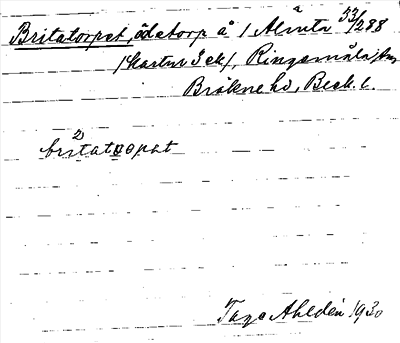 Britatorpet, ödetorp å / Almta 33/288
/kartan 3 ek/, Ringamåla sn,
Bräkne hd, Blek. l.
britatoopat
Tage Ahldén 1930